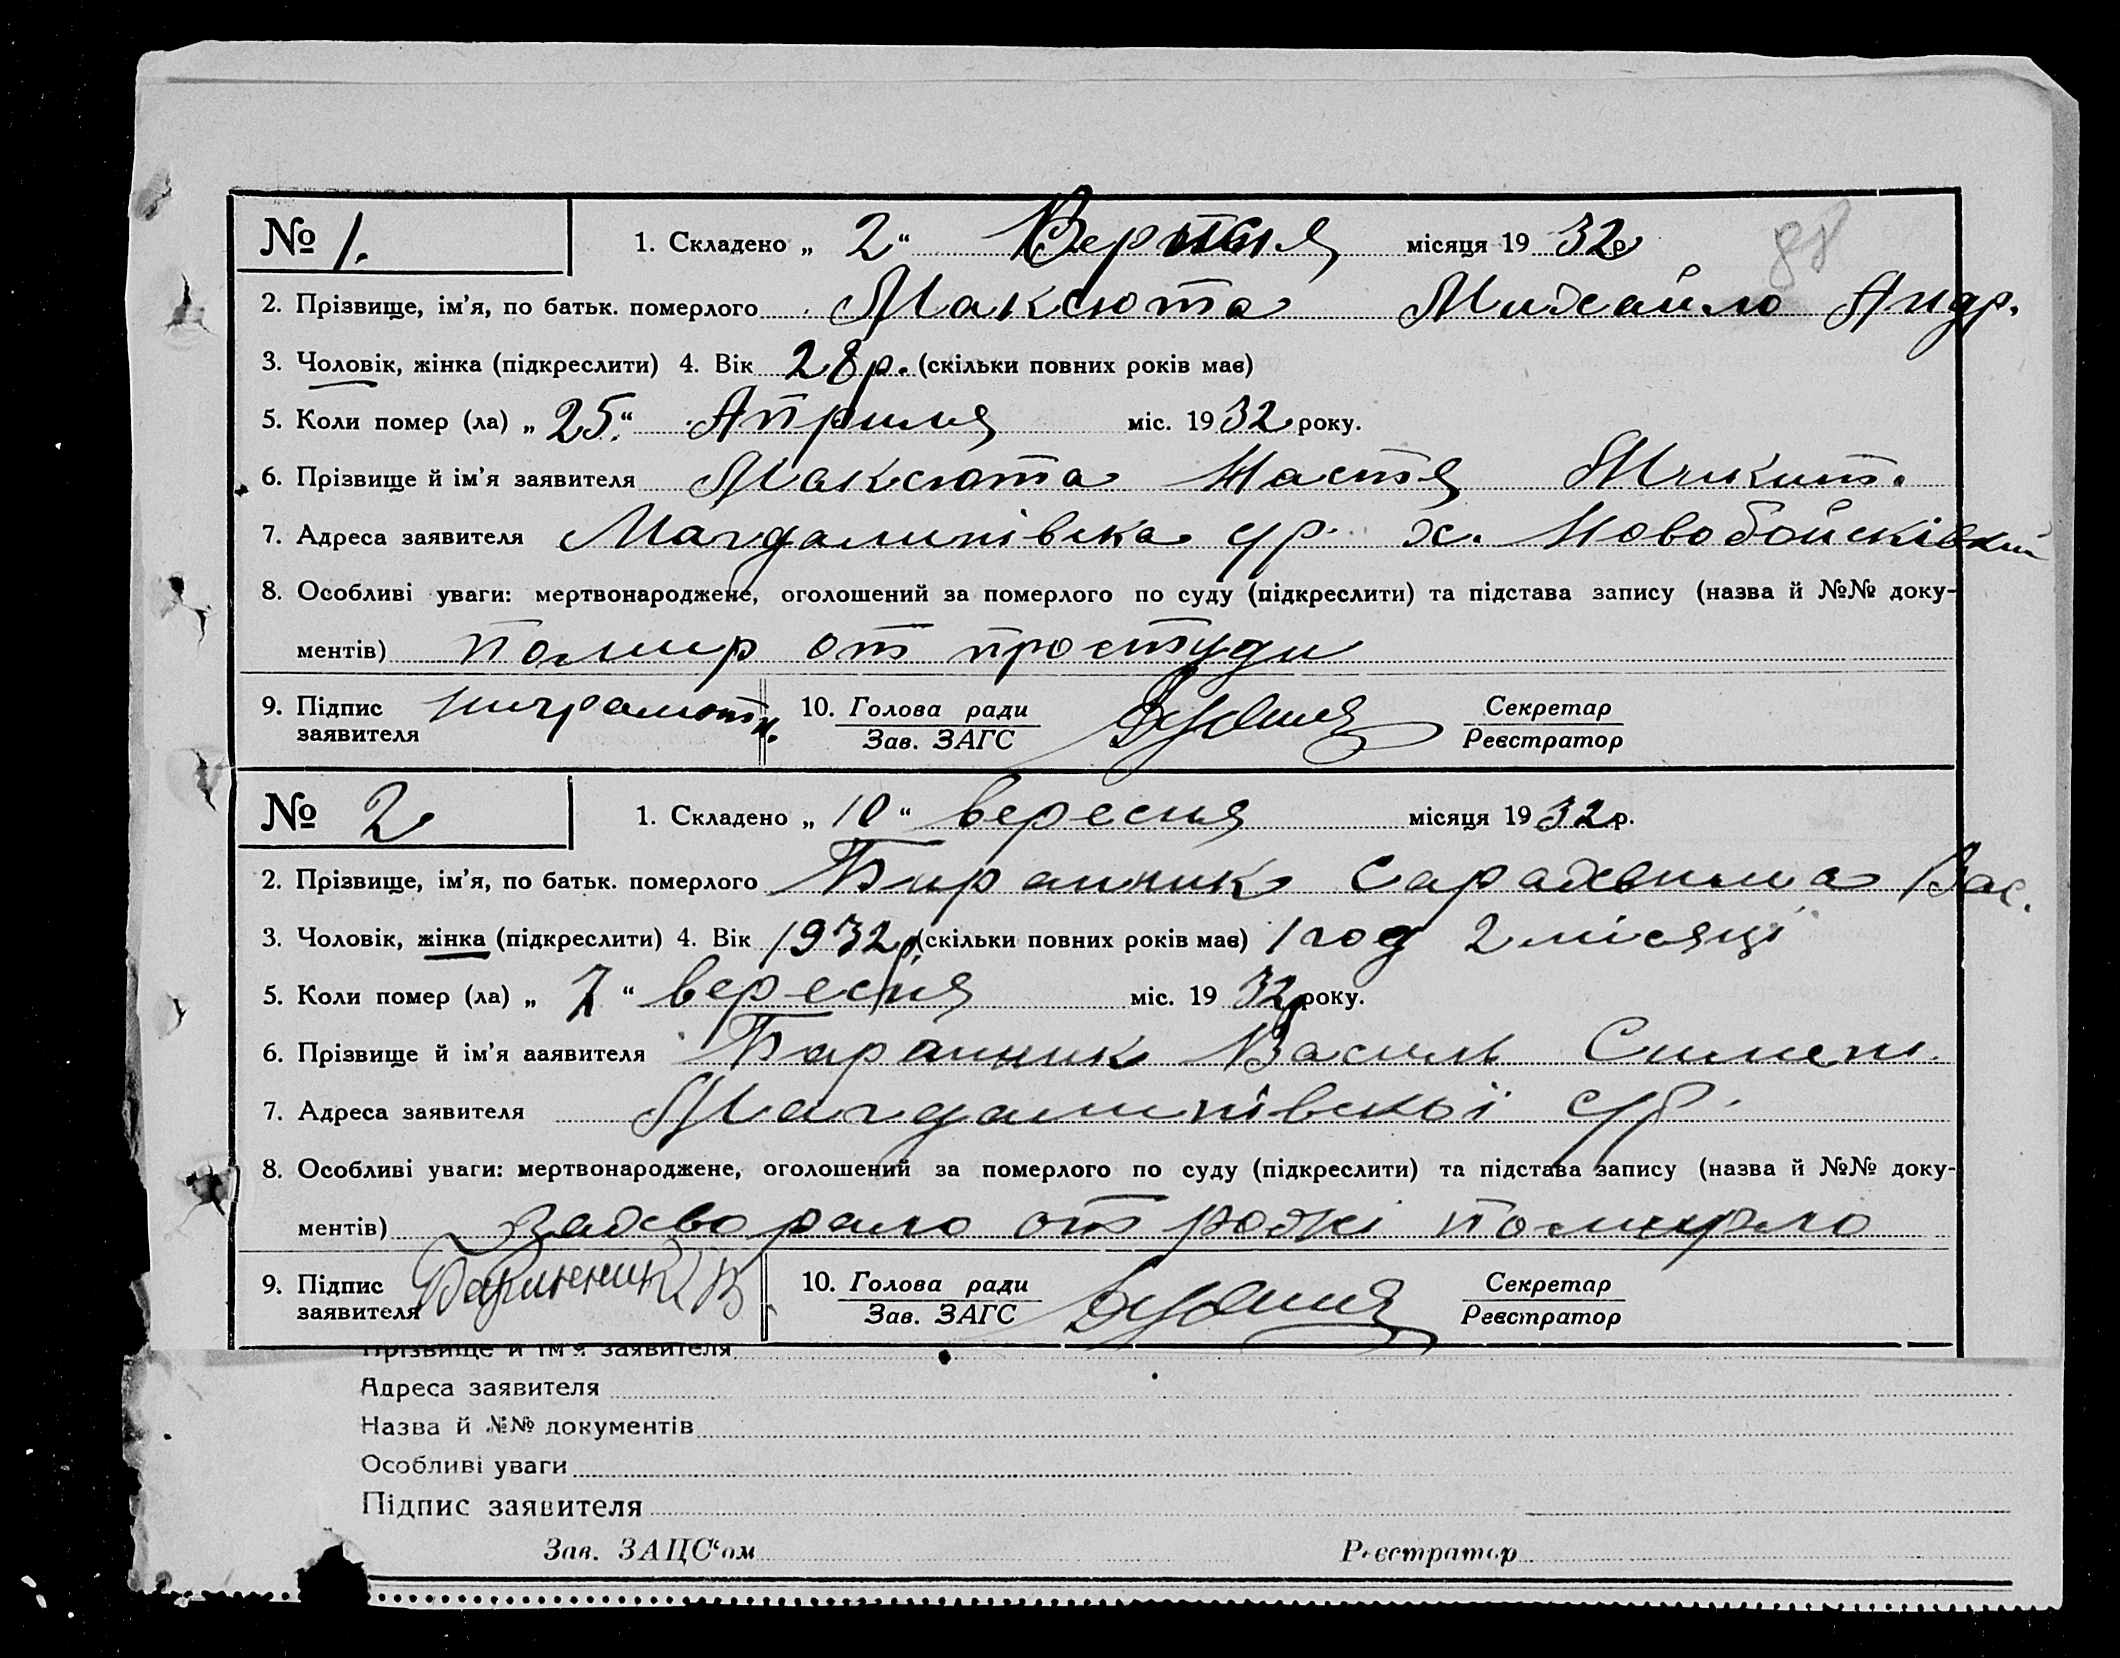 № 1. 1. Складено „ 2 “ Версния місяця 19 32 р
88
2. Прізвище, ім'я, по батьк. померлого Максюта Михайло Андр.
3. Чоловік, жінка (підкреслити) 4. Вік 28 р. (скільки повних років має)
5. Коли помер (ла) „ 25. “ Априля міс. 19 32 року.
6. Прізвище й ім'я заявителя Максюта Настя Микит.
7. Адреса заявителя Магдалинівска с/р. х. Новобойсківкий
8. Особливі уваги: мертвонароджене, оголошений за померлого по суду (підкреслити) та підстава запису (назва й №№ доку-
ментів) помир от простуди
9. Підпис заявителя ниграмотн. 10. Голова ради Зав. ЗАГС Секретар Реєстратор
№ 2 1. Складено „ 10 “ вересня місяця 19 32 р.
2. Прізвище, ім'я, по батьк. померлого Бираник Вас.
3. Чоловік, жінка (підкреслити) 4. Вік 1932 р. (скільки повних років має) 1 год 2 місяці
5. Коли помер (ла) „ 7 “ вересня міс. 19 32 року.
6. Прізвище й ім'я ааявителя Бараник Василь Симен.
7. Адреса заявителя Магдалинівскоі с/р.
8. Особливі уваги: мертвонароджене, оголошений за померлого по суду (підкреслити) та підстава запису (назва й №№ доку-
ментів) захворало от рожі помирло
9. Підпис заявителя Баринник В 10. Голова ради Зав. ЗАГС Секретар Реєстратор
Прізвище й ім'я заявителя
Адреса заявителя
Назва й №№ документів
Особливі уваги
Підпис заявителя
Зав. ЗАЦС'ом Реєстратор